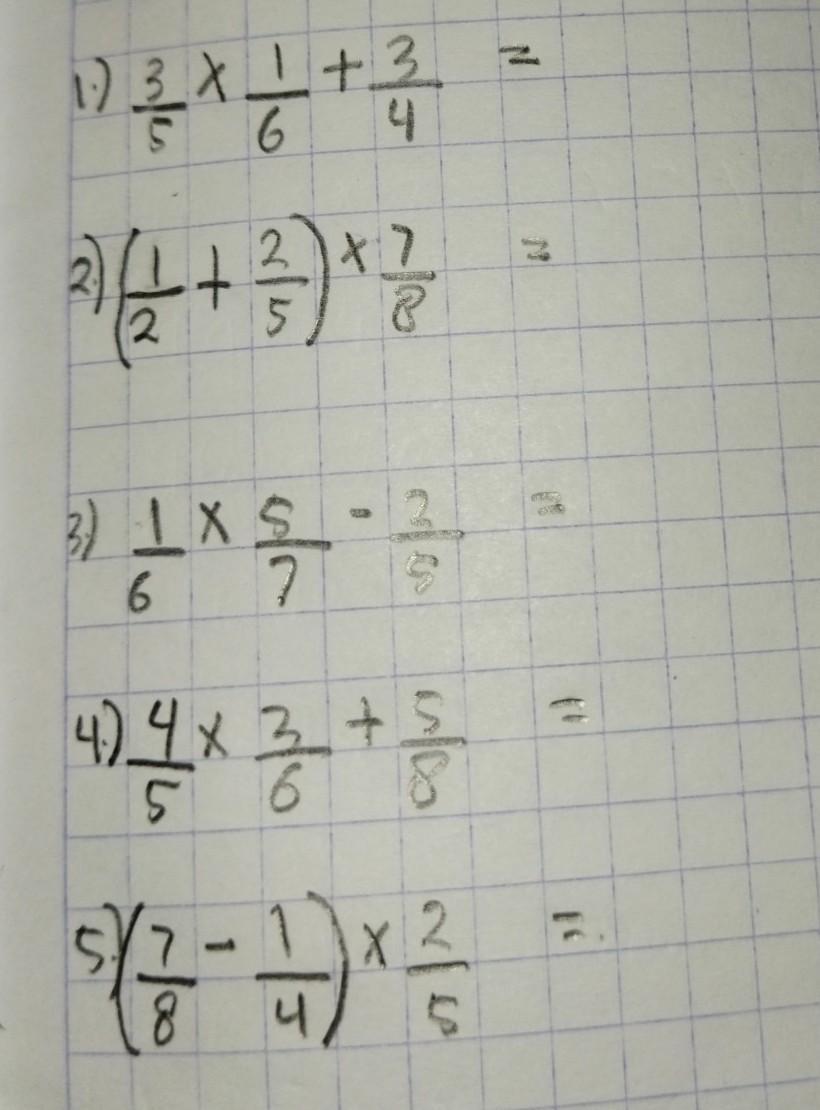 1.) 3/5 × 1/6 + 3/4 =
2.) (1/2 + 2/5) × 7/8 =
3.) 1/6 × 5/7 - 2/5 =
4.) 4/5 × 3/6 + 5/8 =
5.) (7/8 - 1/4) × 2/5 =